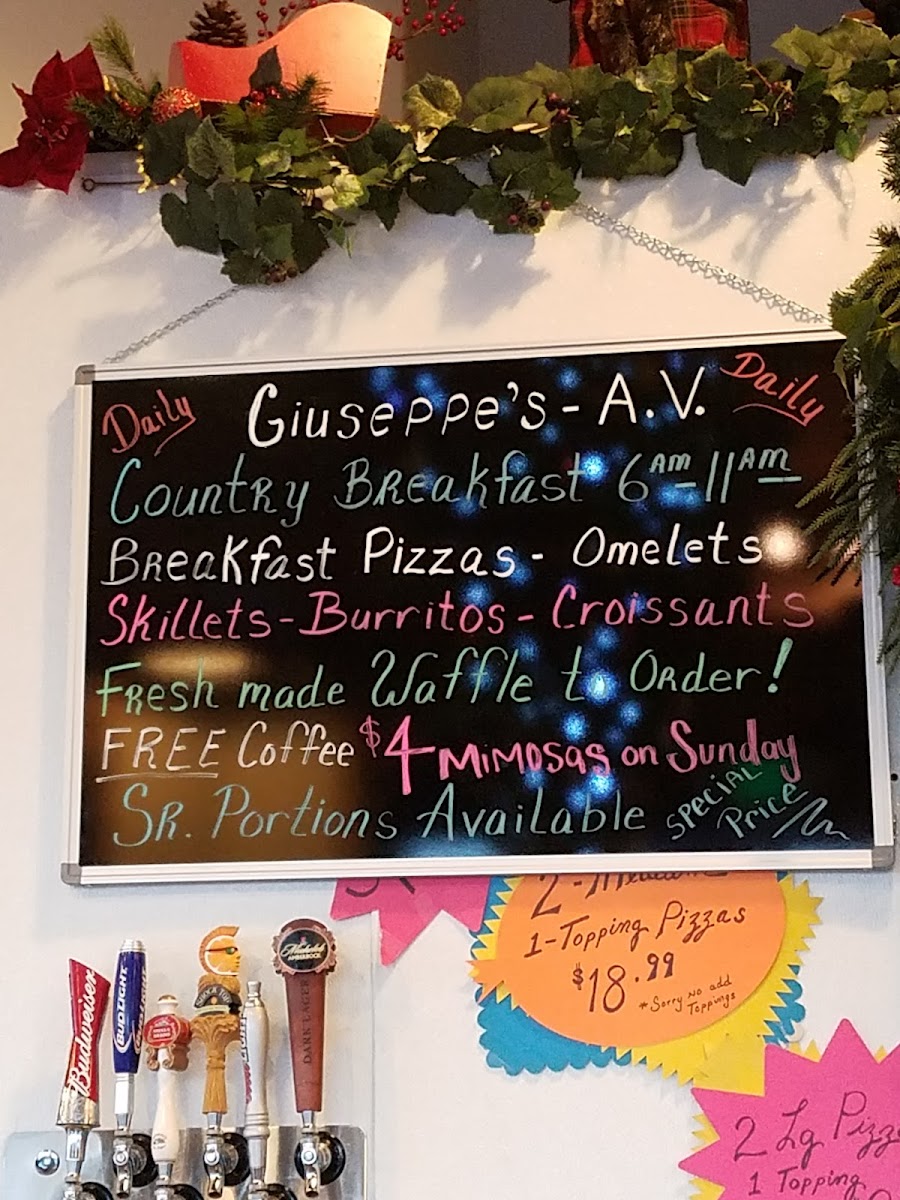 Daily Giuseppe's - A.V. Daily
Country Breakfast 6AM-11AM
Breakfast Pizzas - Omelets
Skillets - Burritos - Croissants
Fresh made Waffle to Order!
FREE Coffee $4 Mimosas on Sunday
Sr. Portions Available Special Price
2-Medium
1-Topping Pizzas
$18.99
*Sorry no add
Toppings
2 Lg Pizz
1 Topping
Budweiser
BUD LIGHT
AMBERBOCK
DARK LAGER